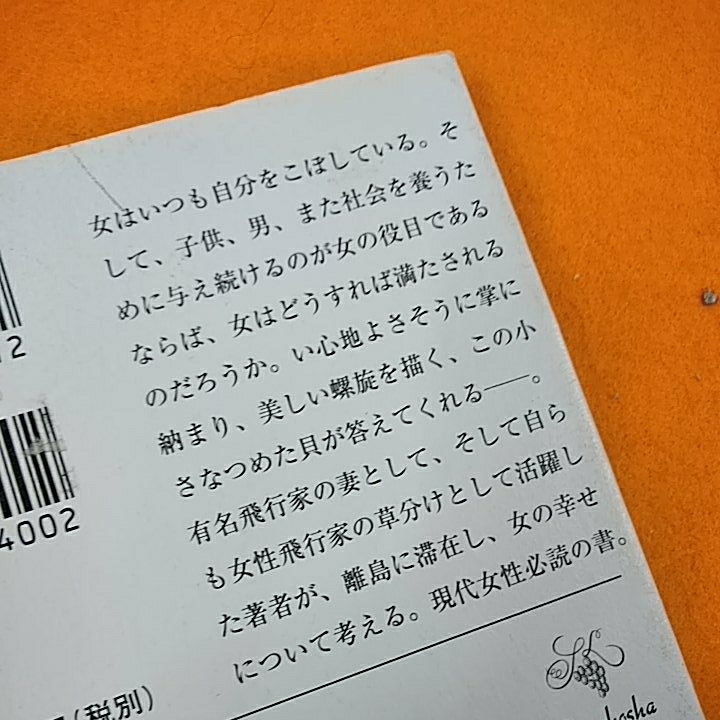 女はいつも自分をこぼしている。そ
して、子供、男、また社会を養うた
めに与え続けるのが女の役目である
ならば、女はどうすれば満たされる
のだろうか。い心地よさそうに掌に
納まり、美しい螺旋を描く、この小
さなつめた貝が答えてくれる――。
有名飛行家の妻として、そして自ら
も女性飛行家の草分けとして活躍し
た著者が、離島に滞在し、女の幸せ
について考える。現代女性必読の書。
2
4002
(税別)